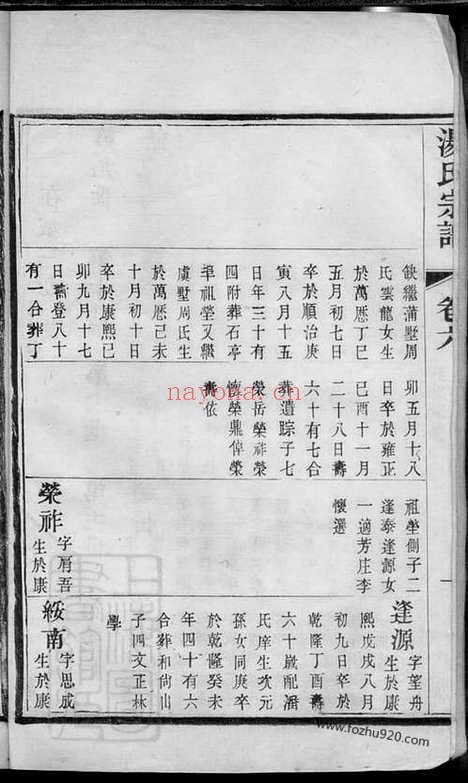 湯氏宗譜
卷六
缺繼蒲墅周
氏雲龍女生
於萬歷丁巳
五月初七日
卒於順治庚
寅八月十五
日年三十有
四附葬石亭
祖塋又繼
虞墅周氏生
於萬歷己未
十月初十日
卒於康熙己
卯九月十七
日壽登八十
有一合葬丁
卯五月十八
日卒於雍正
己酉十一月
二十八日壽
六十有七合
葬遺踪子七
榮岳榮祚榮
榮鼎倬榮
壽依
祖塋側子二
逢泰逢源女
一適芳庄李
懷選
榮祚
字眉吾
生於康
逢源
字望舟
生於康
熙戊戌八月
初九日卒於
乾隆丁酉壽
六十歲配潘
氏庠生次元
孫女同庚卒
於乾隆癸未
年四十有六
合葬和尚山
子四文正林
學
綏南
字思成
生於康
nayona.cn
www.fozhu920.com